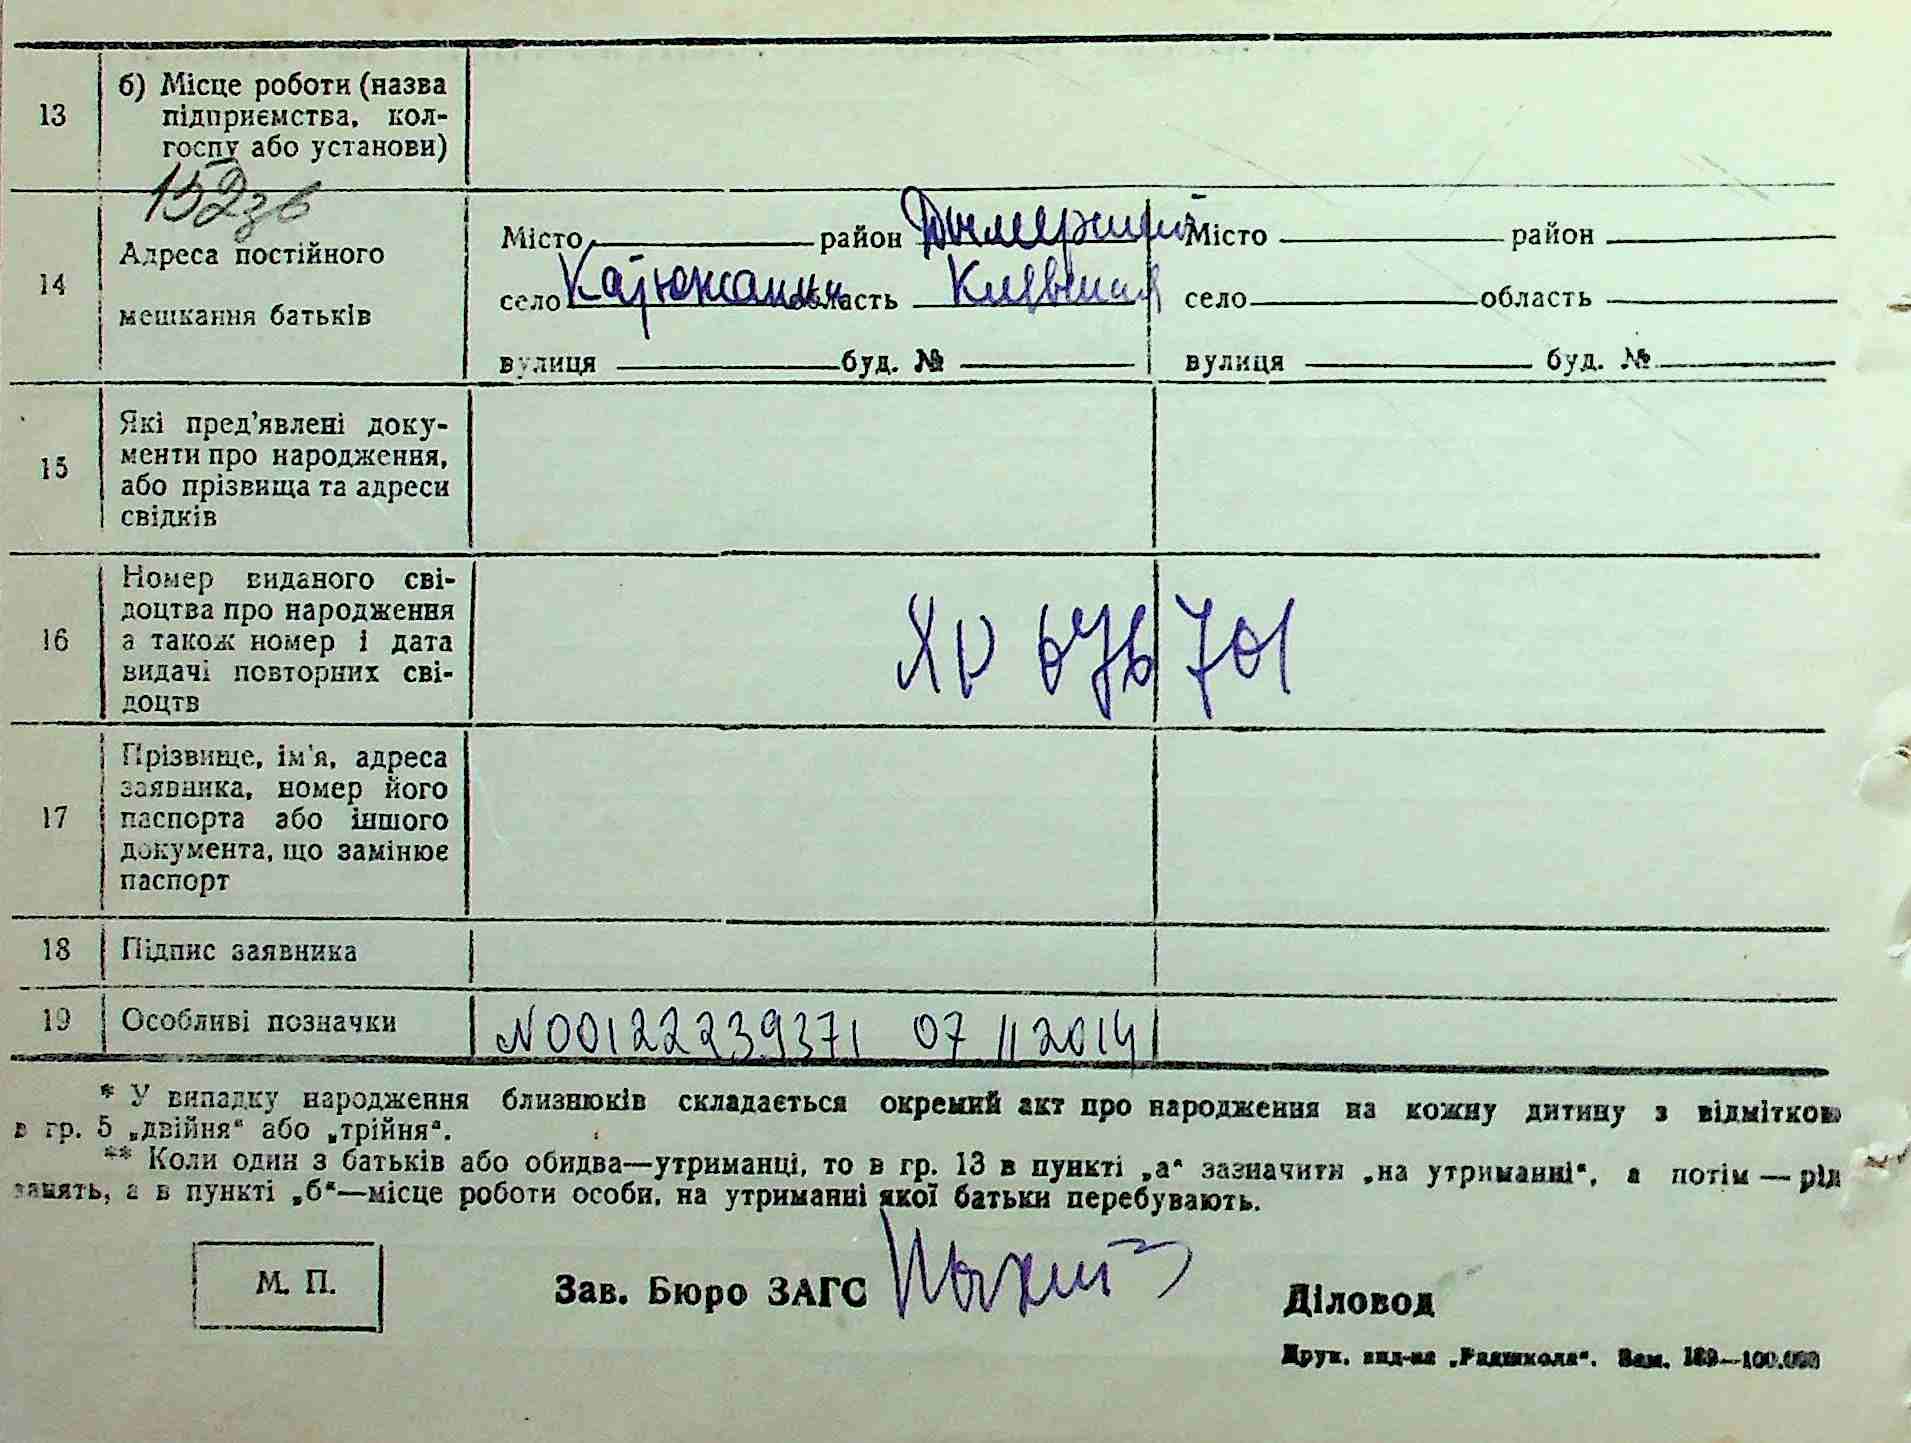 13 б) Місце роботи (назва
підприємства, кол-
госпу або установи)
14 Адреса постійного
мешкання батьків
Місто район Дымерский Місто район
село Катюжанки область Киевская село область
вулиця буд. № вулиця буд. №
15 Які пред'явлені доку-
менти про народження,
або прізвища та адреси
свідків
16 Номер виданого сві-
доцтва про народження
а також номер і дата
видачі повторних сві-
доцтв
676 701
17 Прізвище, ім'я, адреса
заявника, номер його
паспорта або іншого
документа, що замінює
паспорт
18 Підпис заявника
19 Особливі позначки N00122239371 07 11 2014
* У випадку народження близнюків складається окремий акт про народження на кожну дитину з відміткою
в гр. 5 „двійня“ або „трійня“.
** Коли один з батьків або обидва—утриманці, то в гр. 13 в пункті „а“ зазначити „на утриманні“, а потім — рід
занять, а в пункті „б“—місце роботи особи, на утриманні якої батьки перебувають.
М. П.
Зав. Бюро ЗАГС
Діловод
Друк. вид-ва „Радшкола“. Зам. 189—100.000